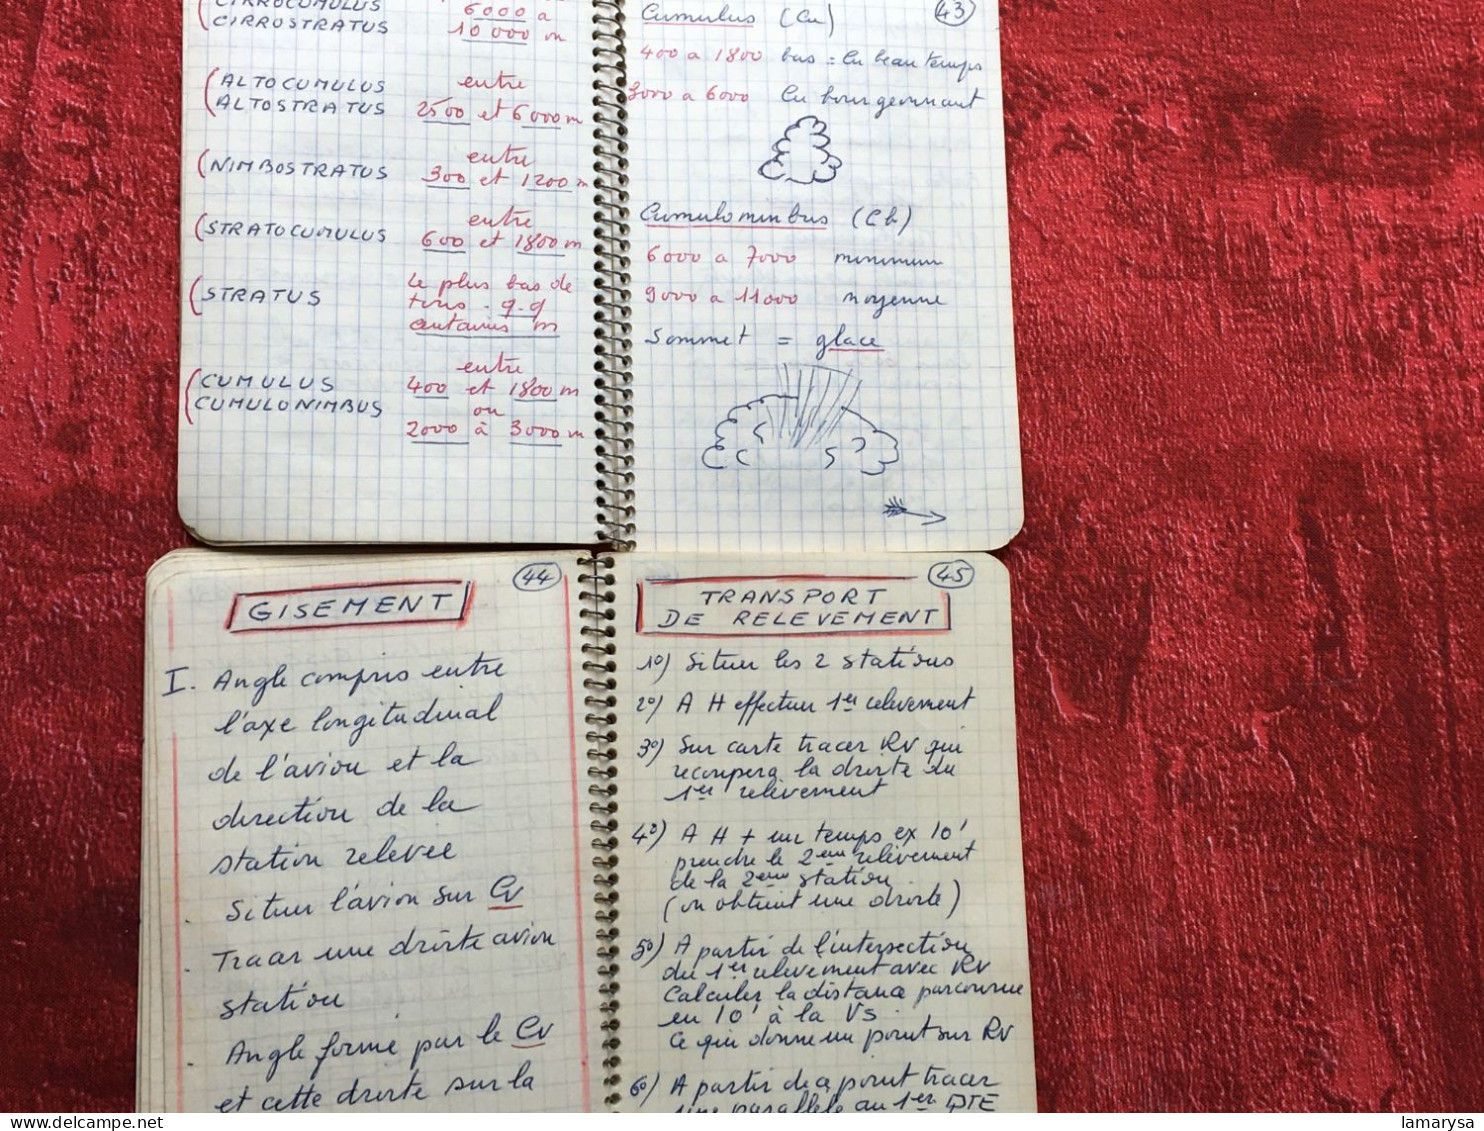 CIRROCUMULUS
CIRROSTRATUS
6000 a
10 000 m
ALTOCUMULUS
ALTOSTRATUS
entre
2500 et 6000m
NIMBOSTRATUS
entre
300 et 1200 m
STRATOCUMULUS
entre
600 et 1800 m
STRATUS
Le plus bas de
tous - q.q
centaines m
CUMULUS
CUMULONIMBUS
entre
400 et 1800 m
ou
2000 à 3000 m
43
Cumulus (Cu)
400 a 1800 bas = Cu beau temps
3000 a 6000 Cu bourgeonnant
Cumulominbus (Cb)
6000 a 7000 minimum
9000 a 11000 moyenne
Sommet = glace
44
GISEMENT
I. Angle compris entre
l'axe longitudinal
de l'avion et la
direction de la
station relevée
Situer l'avion sur Cv
Tracer une droite avion
station
Angle formé par le Cv
et cette droite sur la
45
TRANSPORT
DE RELEVEMENT
1°) Situer les 2 stations
2°) A H effectuer 1er relevement
3°) Sur carte tracer Rv qui
recoupera la droite du
1er relèvement
4°) A H + un temps ex 10'
prendre le 2eme relèvement
de la 2eme station
(on obtient une droite)
5°) A partir de l'intersection
du 1er relevement avec Rv
Calculer la distance parcourue
en 10' à la Vs
Ce qui donne un point sur Rv
6°) A partir de a point tracer
une parallèle au 1er DTE
lamarysa